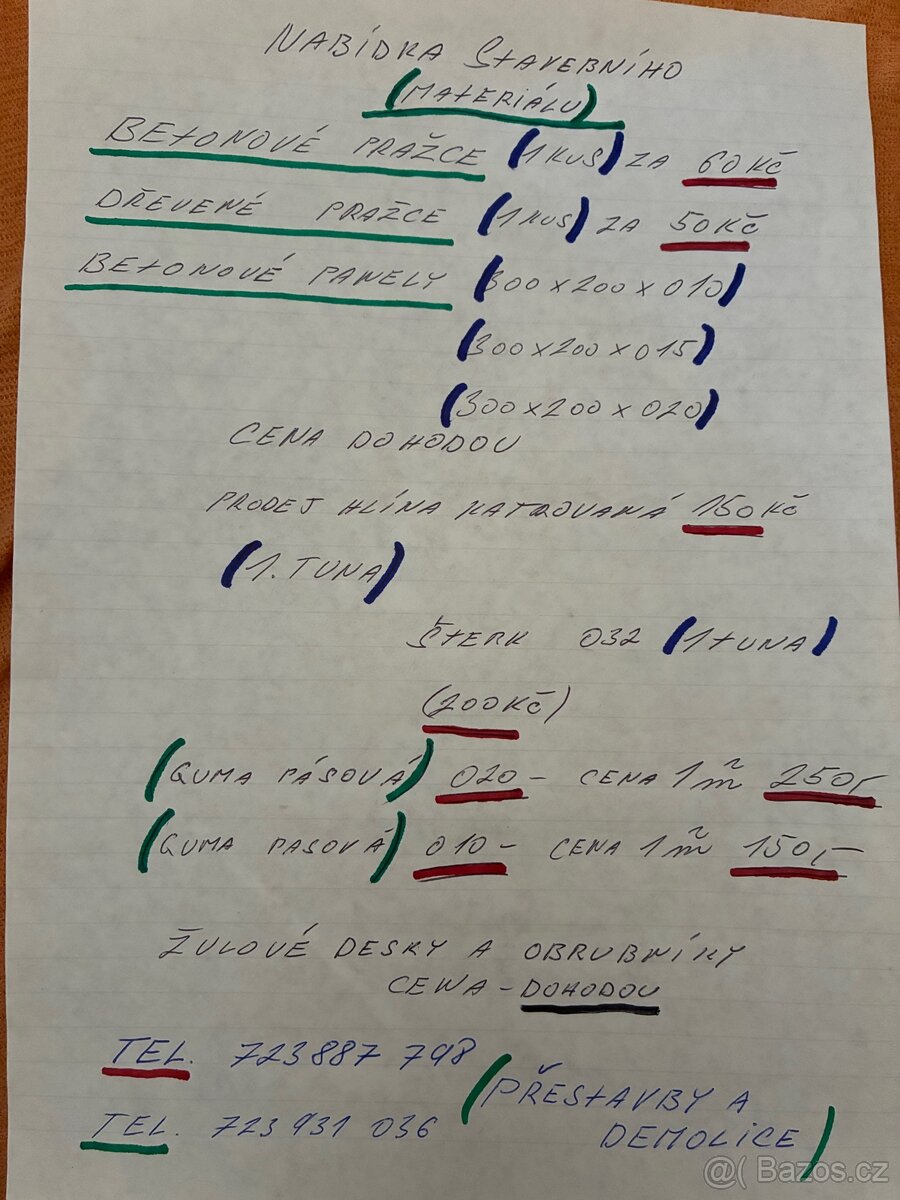 NABÍDKA STAVEBNÍHO
(MATERIÁLU)
BETONOVÉ PRAŽCE (1 KUS) ZA 60 KČ
DŘEVENÉ PRAŽCE (1 KUS) ZA 50 KČ
BETONOVÉ PANELY (300 x 200 x 010)
(300 x 200 x 015)
(300 x 200 x 020)
CENA DOHODOU
PRODEJ HLÍNA KATROVANÁ 150 KČ
(1. TUNA)
ŠTERK 032 (1 TUNA)
(200 KČ)
(GUMA PÁSOVÁ) 020 - CENA 1 m² 250,-
(GUMA PASOVÁ) 010 - CENA 1 m² 150,-
ŽULOVÉ DESKY A OBRUBNÍKY
CENA - DOHODOU
TEL. 723 887 798
(PŘESTAVBY A
TEL. 723 931 036
DEMOLICE)
@( Bazos.cz